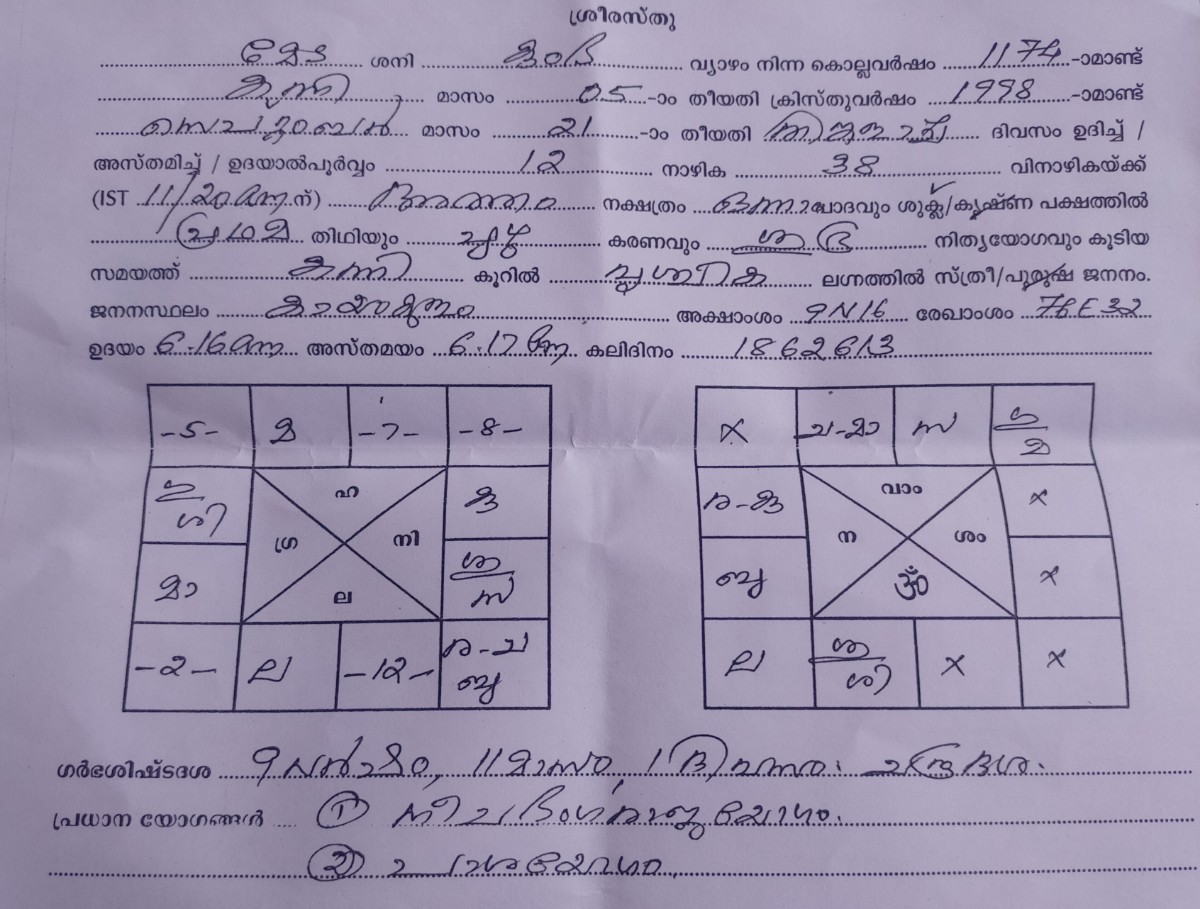 ശ്രീരസ്തു
മേട ശനി കുംഭ വ്യാഴം നിന്ന കൊല്ലവർഷം 1174-ാമാണ്ട്
കന്നി മാസം 05-ാം തീയതി ക്രിസ്തുവർഷം 1998-ാമാണ്ട്
സെപ്റ്റംബർ മാസം 21-ാം തീയതി തിങ്കളാഴ്ച ദിവസം ഉദിച്ച് /
അസ്തമിച്ച് / ഉദയാൽപൂർവ്വം 12 നാഴിക 38 വിനാഴികയ്ക്ക്
(IST 11/20 am ന്) അത്തം നക്ഷത്രം ഒന്നാം പാദവും ശുക്ല/കൃഷ്ണ പക്ഷത്തിൽ
പ്രഥമ തിഥിയും പുഴു കരണവും ശുഭ്ര നിത്യയോഗവും കൂടിയ
സമയത്ത് കന്നി കൂറിൽ വൃശ്ചിക ലഗ്നത്തിൽ സ്ത്രീ/പുരുഷ ജനനം.
ജനനസ്ഥലം കായംകുളം അക്ഷാംശം 9N16 രേഖാംശം 76E32
ഉദയം 6.16 am അസ്തമയം 6.17 Pm കലിദിനം 1862613
-5- മ -7- -8- x ച-മാ സ ഗു മ
ഗു ശി ഹ കു ര-കു വാം x
ഗ്ര നി ന ശം
മാ ല ശു സ ബു ॐ x
-2- ല -12- ര-ച ബു ല ശു ശി x x
ഗർഭശിഷ്ടദശ 9 വർഷം, 11 മാസം, 1 ദിവസം. ചന്ദ്രദശ.
പ്രധാന യോഗങ്ങൾ ① നീചഭംഗരാജയോഗം.
② പാശയോഗം.